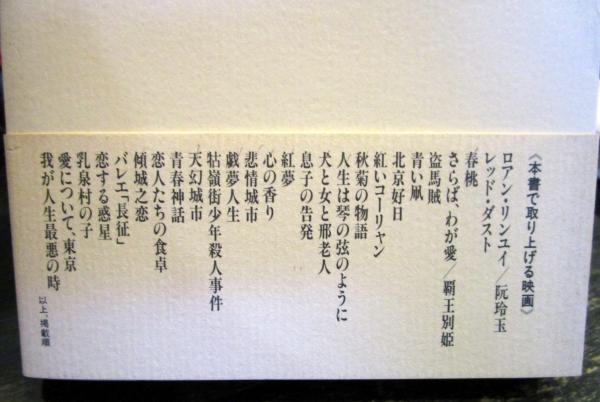 《本書で取り上げる映画》
ロアン・リンユイ／阮玲玉
レッド・ダスト
春桃
さらば、わが愛／覇王別姫
盗馬賊
青い凧
北京好日
紅いコーリャン
秋菊の物語
人生は琴の弦のように
犬と女と邢老人
息子の告発
紅夢
心の香り
悲情城市
戯夢人生
牯嶺街少年殺人事件
天幻城市
青春神話
恋人たちの食卓
傾城之恋
バレエ「長征」
恋する惑星
乳泉村の子
愛について、東京
我が人生最悪の時
以上、掲載順